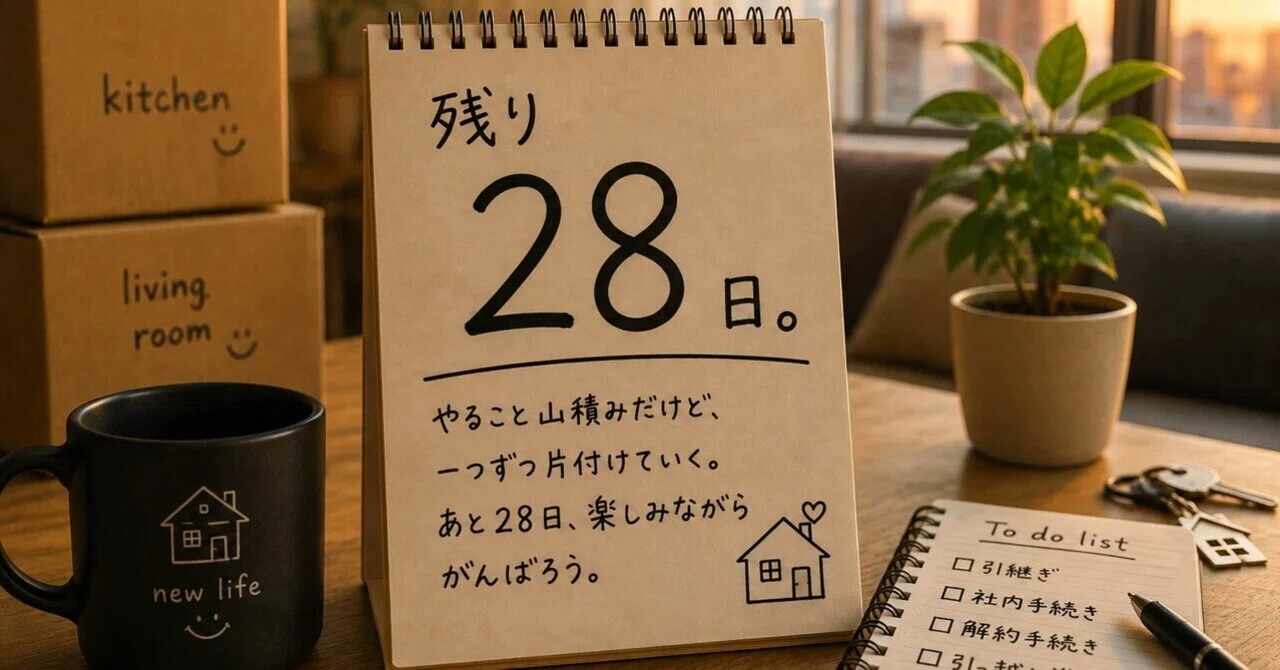 kitchen
living
room
new life
残り
28
日。
やること山積みだけど、
一つずつ片付けていく。
あと28日、楽しみながら
がんばろう。
To do list
引継ぎ
社内手続き
解約手続き
引っ越し